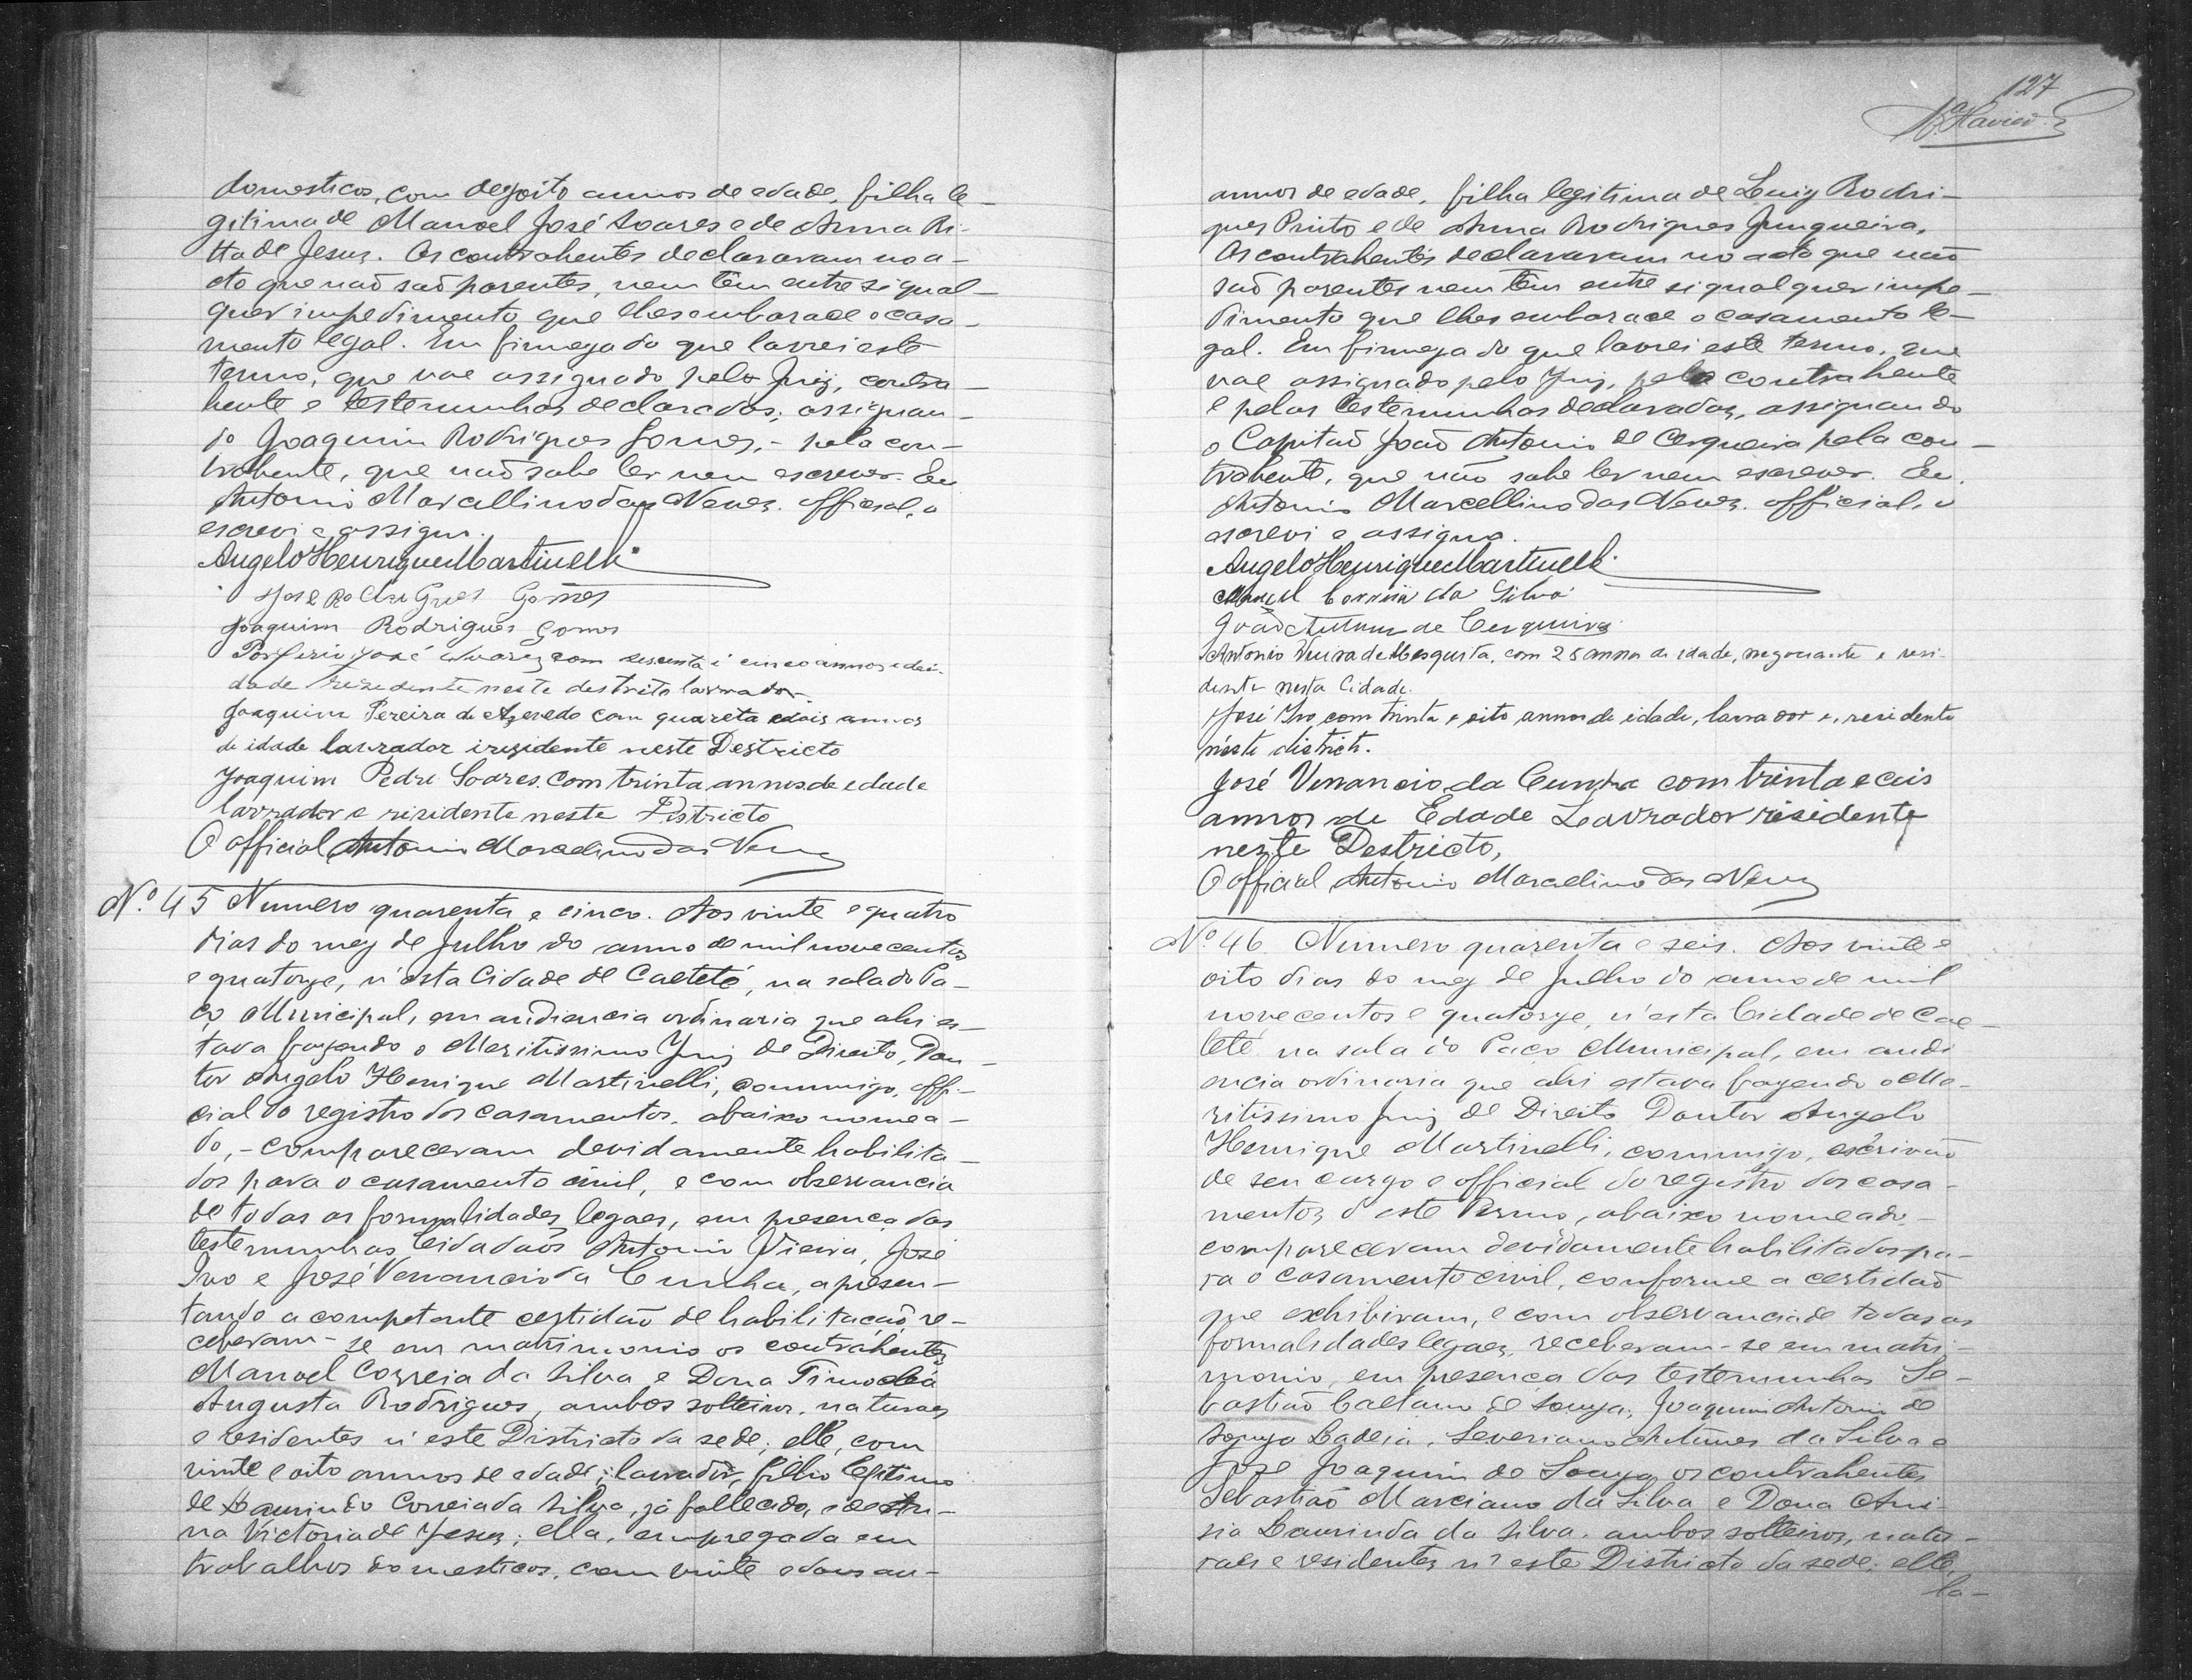 domesticos, com dezoito annos de edade, filha le-
gitima de Manoel José Soares e de Anna Ri-
tta de Jesus. Os contrahentes declararam no a-
cto que naõ saõ parentes, nem têm entre si qual-
quer impedimento que lhes embarace o casa-
mento legal. Em firmeza do que lavrei este
termo, que vae assignado pelo Juiz, contra-
hente e testemunhas declaradas; assignan-
do Joaquim Rodrigues Gomes, - pela con-
trahente, que naõ sabe ler nem escrever. Eu
Antonio Marcellino das Neves. official, o
escrevi e assigno.
Angelo Henrique Martinelli
José Rodrigues Gomes
Joaquim Rodrigues Gomes
Porferio José Soarez com sescenta i cinco annos edei-
dade rezedente neste destrito lavrador
Joaquim Pereira de Azevedo com quareta edois annos
de idade lavrador irezidente neste Destricto
Joaquim Pedro Soares. com trinta annos de edade
lavrador e rizidente neste Districto
O official Antonio Marcelino das Neves
Nº 45 Numero quarenta e cinco. Aos vinte e quatro
dias do mez de Julho do anno de mil nove centos
e quatorze, n'esta Cidade de Caeteté, na sala do Pa-
ço Municipal, em audiencia ordinaria que ahi es-
tava fazendo o Meritissimo Juiz de Direito, Dou-
tor Angelo Henrique Martinelli, commigo, offi-
cial do registro dos casamentos, abaixo nomea-
do, - compareceram devidamente habilita-
dos para o casamento civil, e com observancia
de todas as formalidades legaes, em presença das
testemunhas Cidadaõs Antonio Vieira, José
Ivo e José Venancio da Cunha, apresen-
tando a competente certidaõ de habilitaçaõ, re-
ceberam-se em matrimonio os contrahentes
Manoel Correia da Silva e Dona Timoclia
Augusta Rodrigues, ambos solteiros, naturaes
e residentes n'este Districto da sede; elle, com
vinte e oito annos de edade; lavrador, filho legitimo
de Laurindo Correia da Silva, já fallecido, e de An-
na Victoria de Jesus; ella, empregada em
trabalhos domesticos, com vinte e dous an-
127
annos de edade, filha legitima de Luiz Rodri-
gues Pinto e de Anna Rodrigues Junqueira.
Os contrahentes declararam no acto que naõ
saõ parentes nem têm entre si qualquer impe-
dimento que lhes embarace o casamento le-
gal. Em firmeza do que lavrei este termo, que
vae assignado pelo Juiz, pelo contrahente
e pelas testemunhas declaradas, assignando
o Capitaõ Joaõ Antonio de Cerqueira pela con-
trahente, que não sabe ler nem escrever. Eu,
Antonio Marcellino das Neves. official, o
escrevi e assigno.
Angelo Henrique Martinelli
Manoel Correia da Silva
João Antonio de Cerqueira
Antonio Vieira de Mesquita, com 25 annos de idade, negociante e resi-
dente nesta Cidade.
José Ivo, com trinta e oito annos de idade, lavrador e, residente
neste district.
José Venancio da Cunha com trinta e ceis
annos de Edade Leavrador risidente
neste Destricto,
O official Antonio Marcelino das Neves
Nº 46 Numero quarenta e seis. Aos vinte e
oito dias do mez de Julho do anno de mil
nove centos e quatorze, n'esta Cidade de Cae-
teté na sala do Paço Municipal, em audi
encia ordinaria que ahi estava fazendo o Me-
ritissimo Juiz de Direito Doutor Angelo
Henrique Martinelli, commigo, escrivaõ
de seu cargo e official do registro dos casa-
mentos d'este Termo, abaixo nomeado -
compareceram devidamente habilitados pa-
ra o casamento civil, conforme a certidaõ
que exhibiram, e com observancia de todas as
formalidades legaes, receberam-se em matri-
monio, em presença das testemunhas Se-
bastiaõ Caetano de Souza, Joaquim Antonio de
Souza Ladeia, Severiano Antunes da Silva e
José Joaquim de Souza os contrahentes
Sebastiaõ Marciano da Silva e Dona Ani-
sia Laurinda da Silva, ambos solteiros, natu-
raes e residentes n'este Districto da sede; elle,
la-